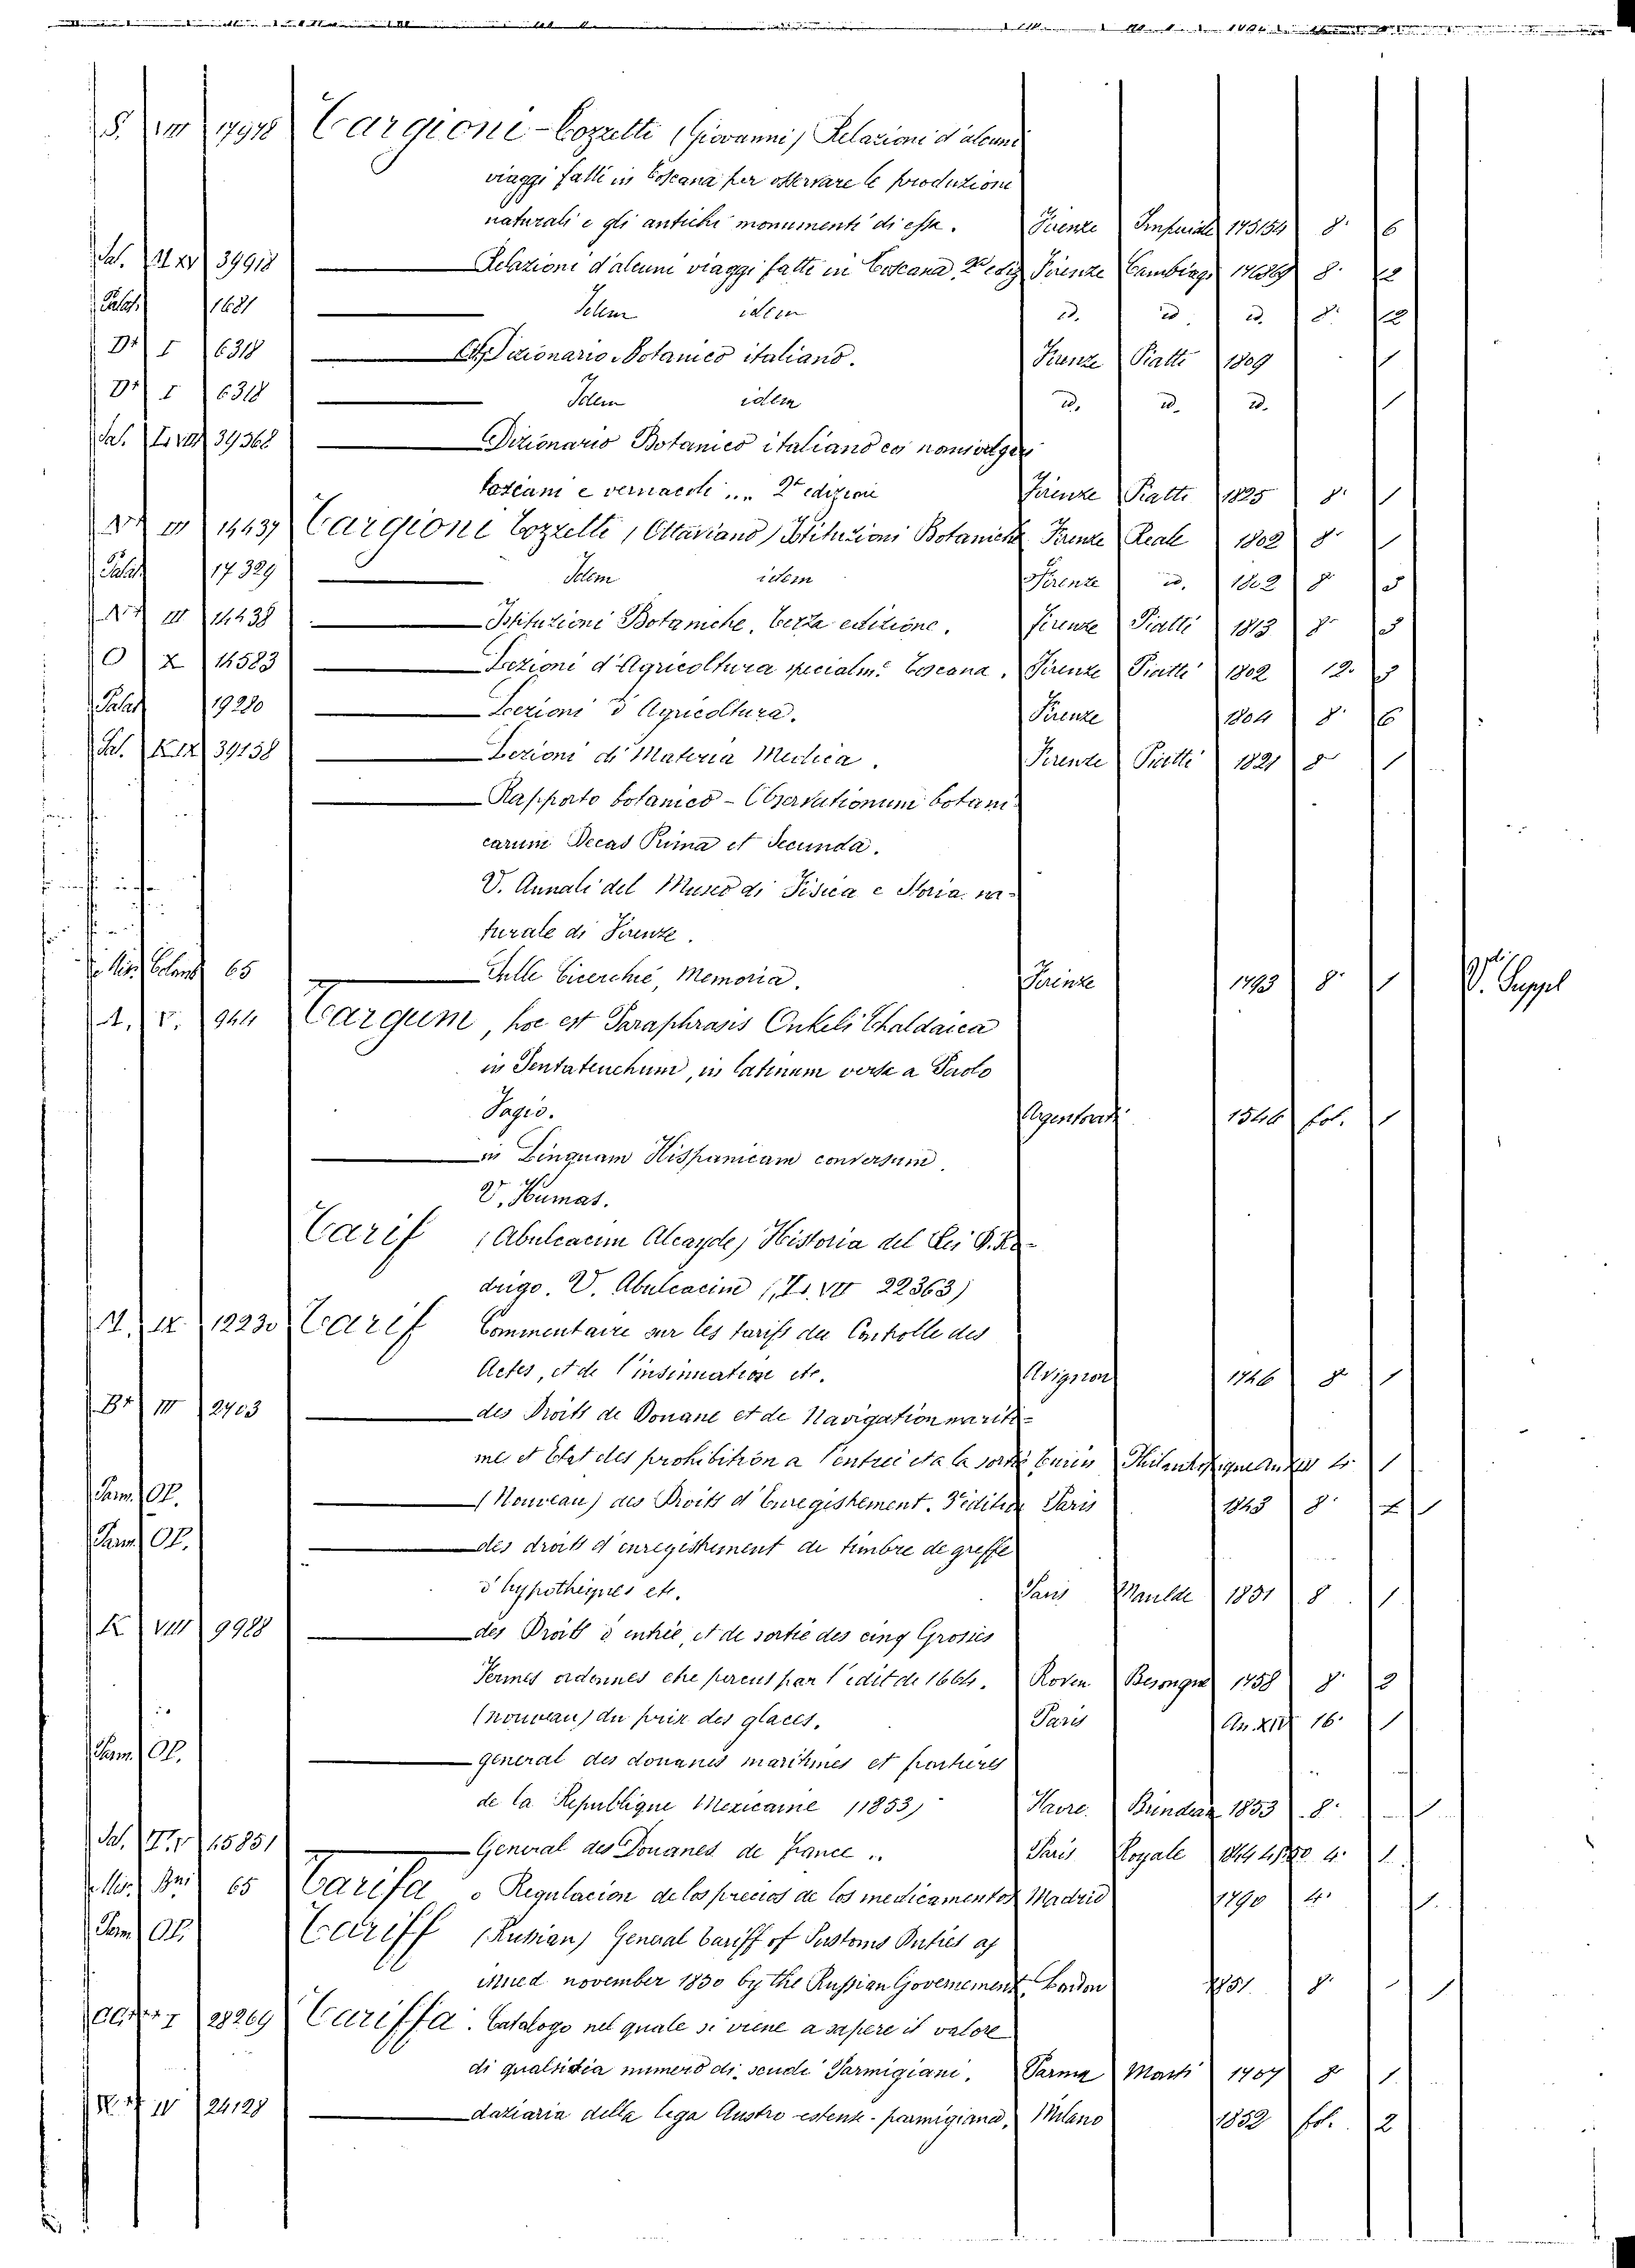 S. VII 17978 Targioni-Tozzetti (Giovanni) Relazioni d'alcuni
viaggi fatti in Toscana per osservare le produzione
naturali e gli antichi monumenti di essa. Firenze Imperiale 1751 54 8. 6
Sal. 39918 Relazioni d'alcuni viaggi fatte in Toscana, 2.a ediz Firenze Cambiagi 1768 8. 12
Palat. 1681 Idem idem id. id. id. 8. 12
I 6318 Dizionario Botanico italiano. Firenze Piatti 1809 1
I 6318 Idem idem id. id. id. 1
Sal. 39368 Dizionario Botanico italiano co' nomi volgari
toscani e vernacoli ... 2.a edizione Firenze Piatti 1825 8. 1
III 14437 Targioni Tozzetti (Ottaviano) Istituzioni Botaniche Firenze Reale 1802 8. 1
Palat. 17329 Idem idem Firenze id. 1802 8 3
III 14438 Istituzioni Botaniche. Terza editione. Firenze Piatti 1813 8. 3
O X 14583 Lezioni d'Agricoltura specialm. Toscana. Firenze Piatti 1802 12. 3
Palat 19280 Lezioni d'Agricoltura. Firenze 1804 8. 6
Sal. 39138 Lezioni di Materia Medica. Firenze Piatti 1821 8 1
Rapporto botanico - Observationum botani
carum Decas Prima et Secunda.
V. Annali del Museo di Fisica e Storia na-
turale di Firenze.
65 Sulle Cicerchie, Memoria. Firenze 1793 8. 1 V. Suppl
A. V. 944 Targum, hoc est Paraphrasis Onkeli Chaldaica
in Pentateuchum, in latinum versa a Paolo
Fagio. Argentorati 1546 fol. 1
in Linguam Hispanicam conversum.
V. Humas.
Tarif (Abulcacim Alcayde) Historia del Rei D. Ro-
drigo. V. Abulcacim (22363)
M. IX 12230 Tarif Commentaire sur les tarifs du Controlle des
Actes, et de l'insinuation etc. Avignon 1746 8. 1
III 2703 des Droits de Douane et de Navigation mariti-
me et Etat des prohibition a l'entrei et a la sortie
Sam. OP. (Nouveau) des Droits d'Enregistrement. 3.e Edition Paris 1843 8. 1
Sam. OP. des droits d'enregistrement de timbre de greffe
d'hypothèques etc. Paris Maulde 1851 8 1
K VIII 9988 des Droits d'entrée, et de sortie des cinq Grosses
Fermes ordonnes etre percus par l'edit de 1664. Roven Besongne 1758 8. 2
(nouveau) du prix des glaces. Paris An. XIII 16. 1
Sam. OP. general des douanes maritimes et frontieres
de la Republique Mexicaine (1853) Havre. 1853 8. 1
Sal. 15851 General des Douanes de France .. Paris Royale 1844 4. 1
65 Tarifa o Regulacion de los precios de los medicamentos Madrid 1790 4. 1
Sam. OP. Tariff (Russian) General tariff of Customs Duties as
issued november 1830 by the Russian Governement London 1831 8. 1
28269 Tariffa. Catalogo nel quale si viene a sapere il valore
di qualsidia numero di scudi Parmigiani. Parma Monti 1707 8. 1
IV 24128 daziaria della lega Austro-estense-parmigiana. Milano 1852 fol. 2